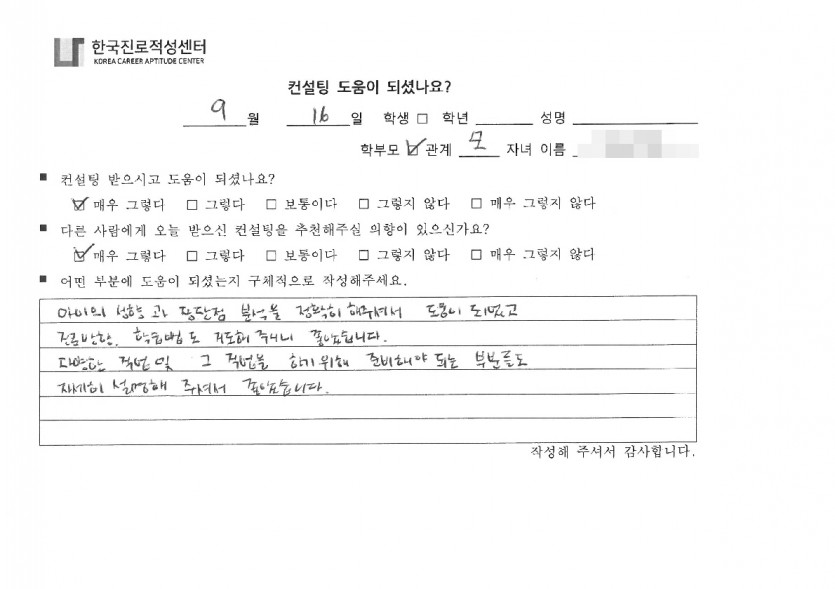 한국진로적성센터
KOREA CAREER APTITUDE CENTER
컨설팅 도움이 되셨나요?
9 월 16 일 학생 □ 학년 성명
학부모 ☑ 관계 모 자녀 이름
■ 컨설팅 받으시고 도움이 되셨나요?
☑ 매우 그렇다 □ 그렇다 □ 보통이다 □ 그렇지 않다 □ 매우 그렇지 않다
■ 다른 사람에게 오늘 받으신 컨설팅을 추천해주실 의향이 있으신가요?
☑ 매우 그렇다 □ 그렇다 □ 보통이다 □ 그렇지 않다 □ 매우 그렇지 않다
■ 어떤 부분에 도움이 되셨는지 구체적으로 작성해주세요.
아이의 성향과 장단점 분석을 정확히 해주셔서 도움이 되었고
진로방향, 학습법도 지도해 주시니 좋았습니다.
다양한 직업 및 그 직업을 하기위해 준비해야 되는 부분들도
자세히 설명해 주셔서 좋았습니다.
작성해 주셔서 감사합니다.